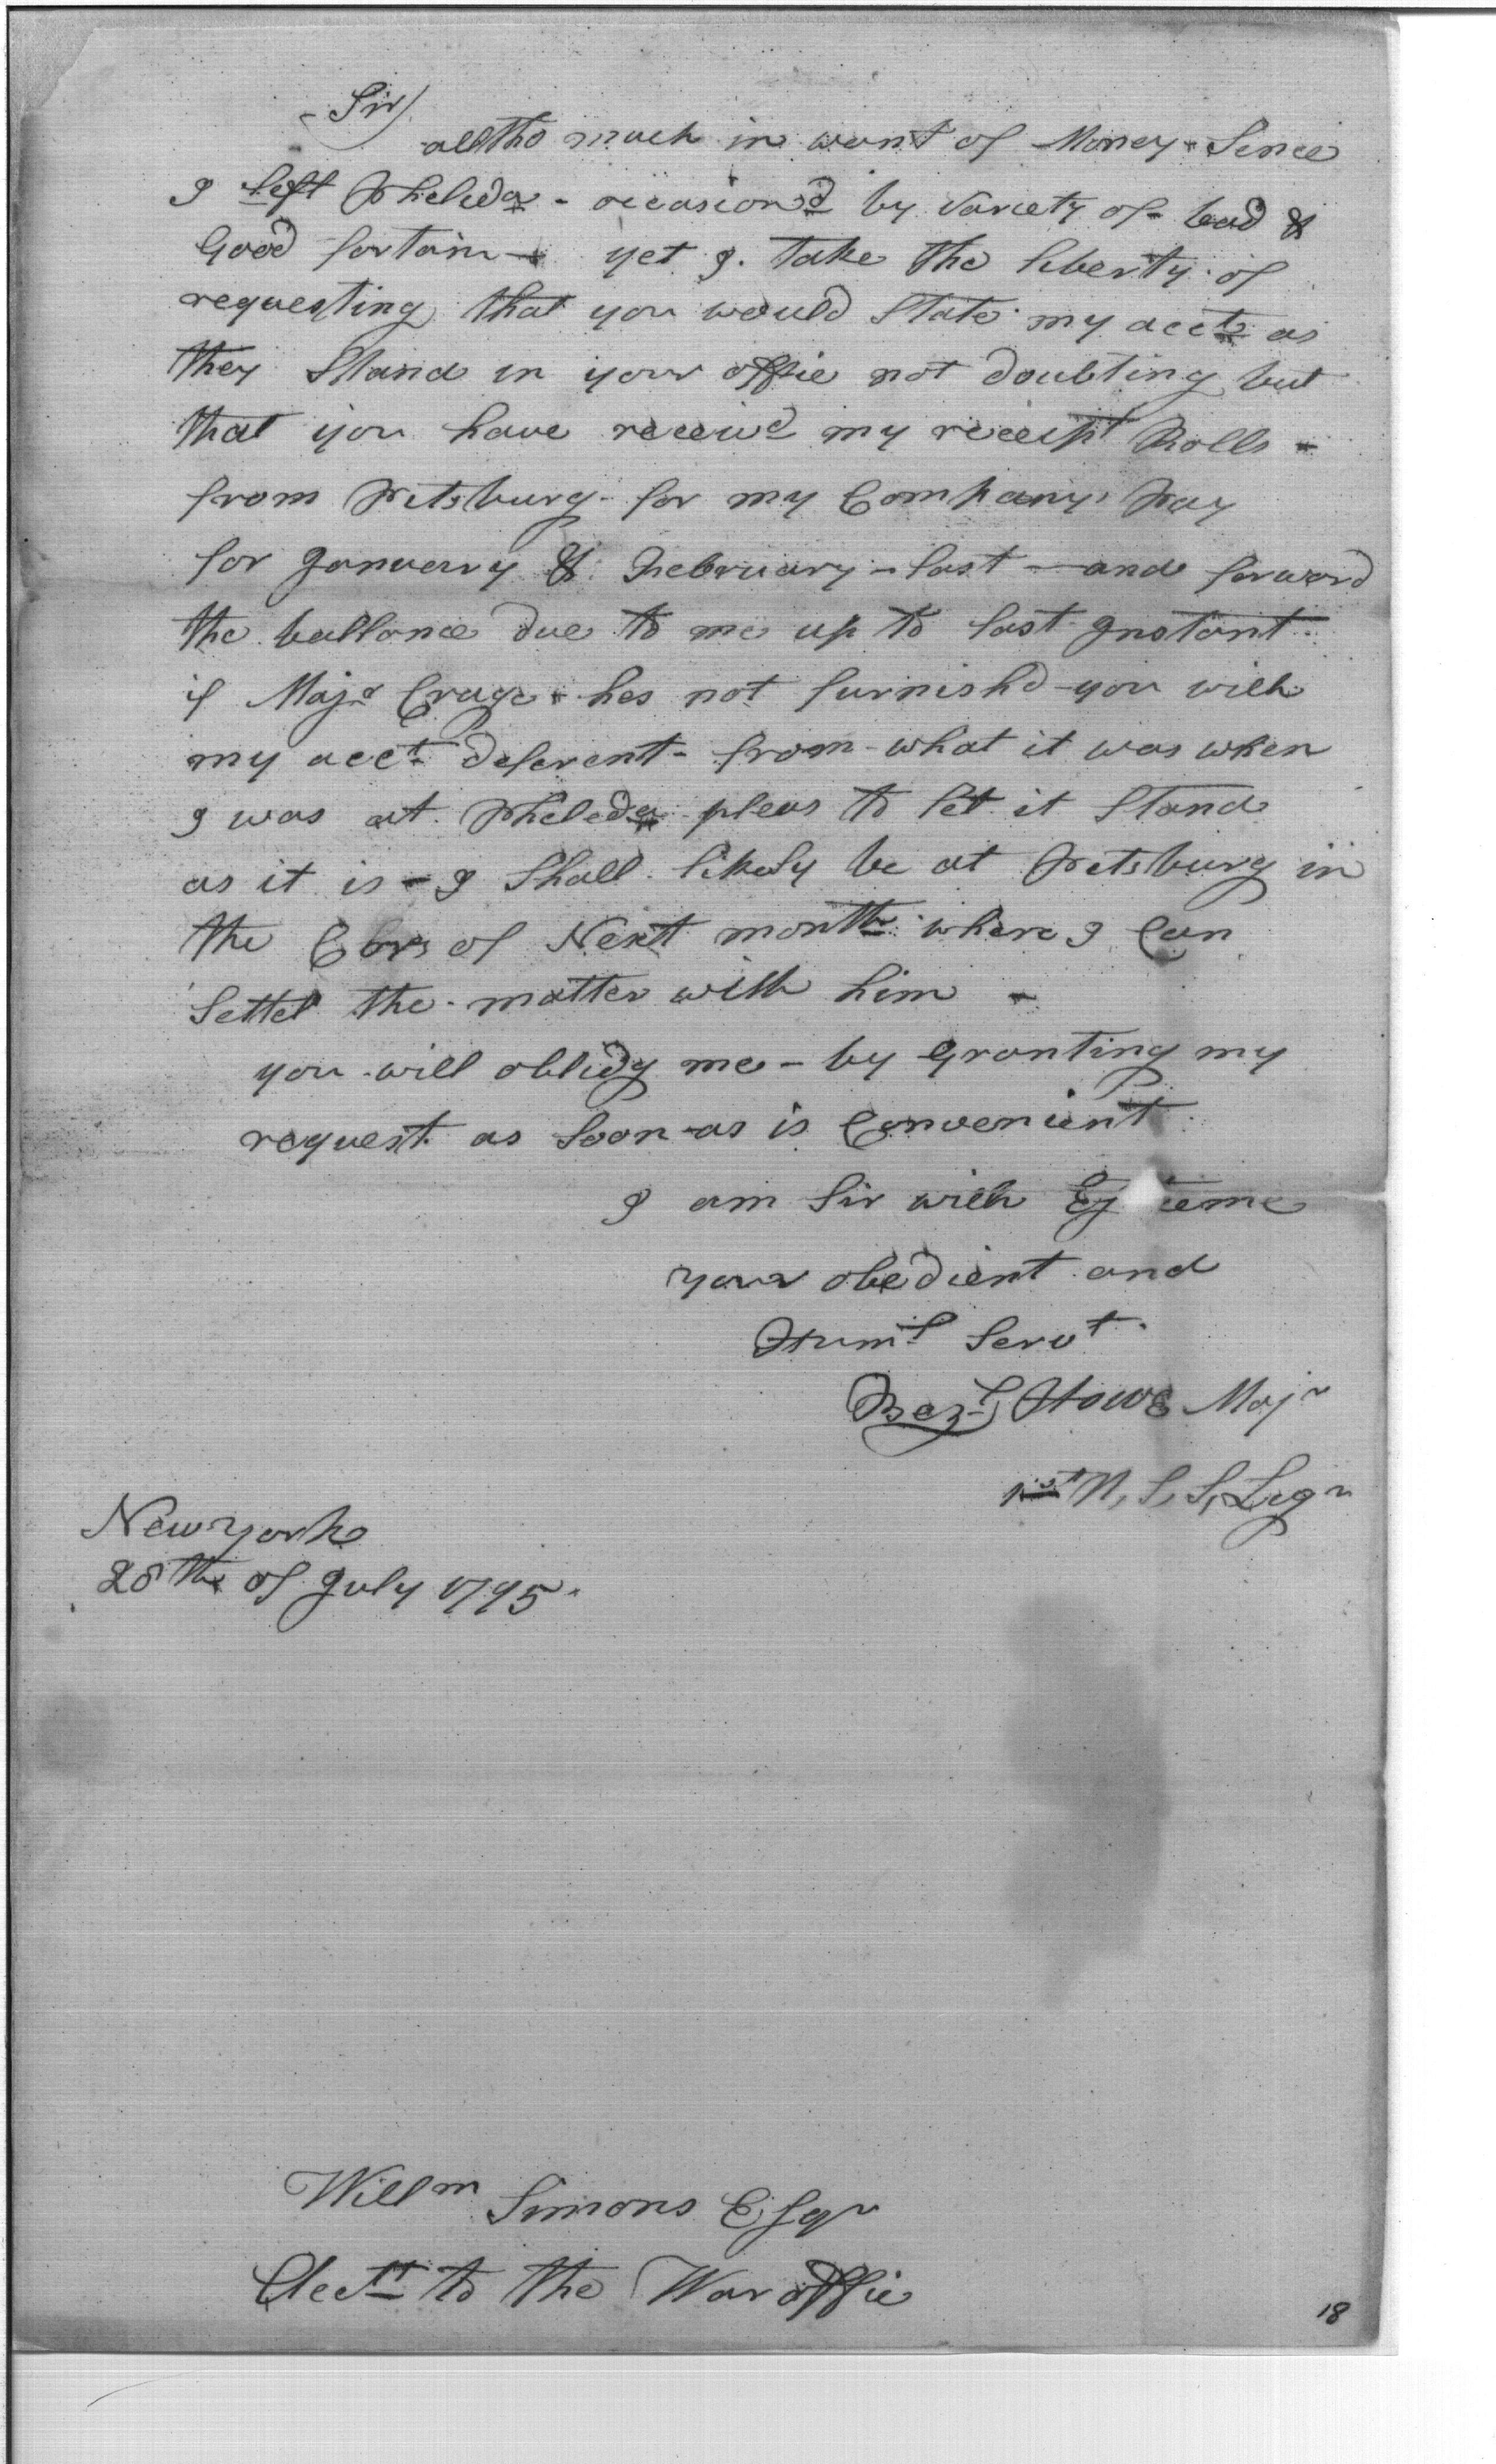 Sir/
alltho much in want of Money - Since
I left Pheleda - occasiond by variety of bad &
Good fortain - yet I take the liberty of
requesting that you would State my accts as
they Stand in your offie not doubting but
that you have receivd my receipt Rolls -
from Pitsburg - for my Companys Pay
for January & February - last - and forward
the ballance due to me up to last Instant
if Majr Crage - hes not furnishd you with
my acct deferent - from what it was when
I was at Pheleda pleas to let it Stand
as it is - I Shall likely be at Pitsburg in
the Cors of Next month where I Can
Settel the matter with him -
you will oblidg me - by Granting my
request as Soon as is Convenient
I am Sir with
your obedient and
Huml Servt
Bezl Howe Majr
1st U, S, S, Legn
New york
28th of July 1795
Willm Simons Esqr
Acctt to the War offie
18